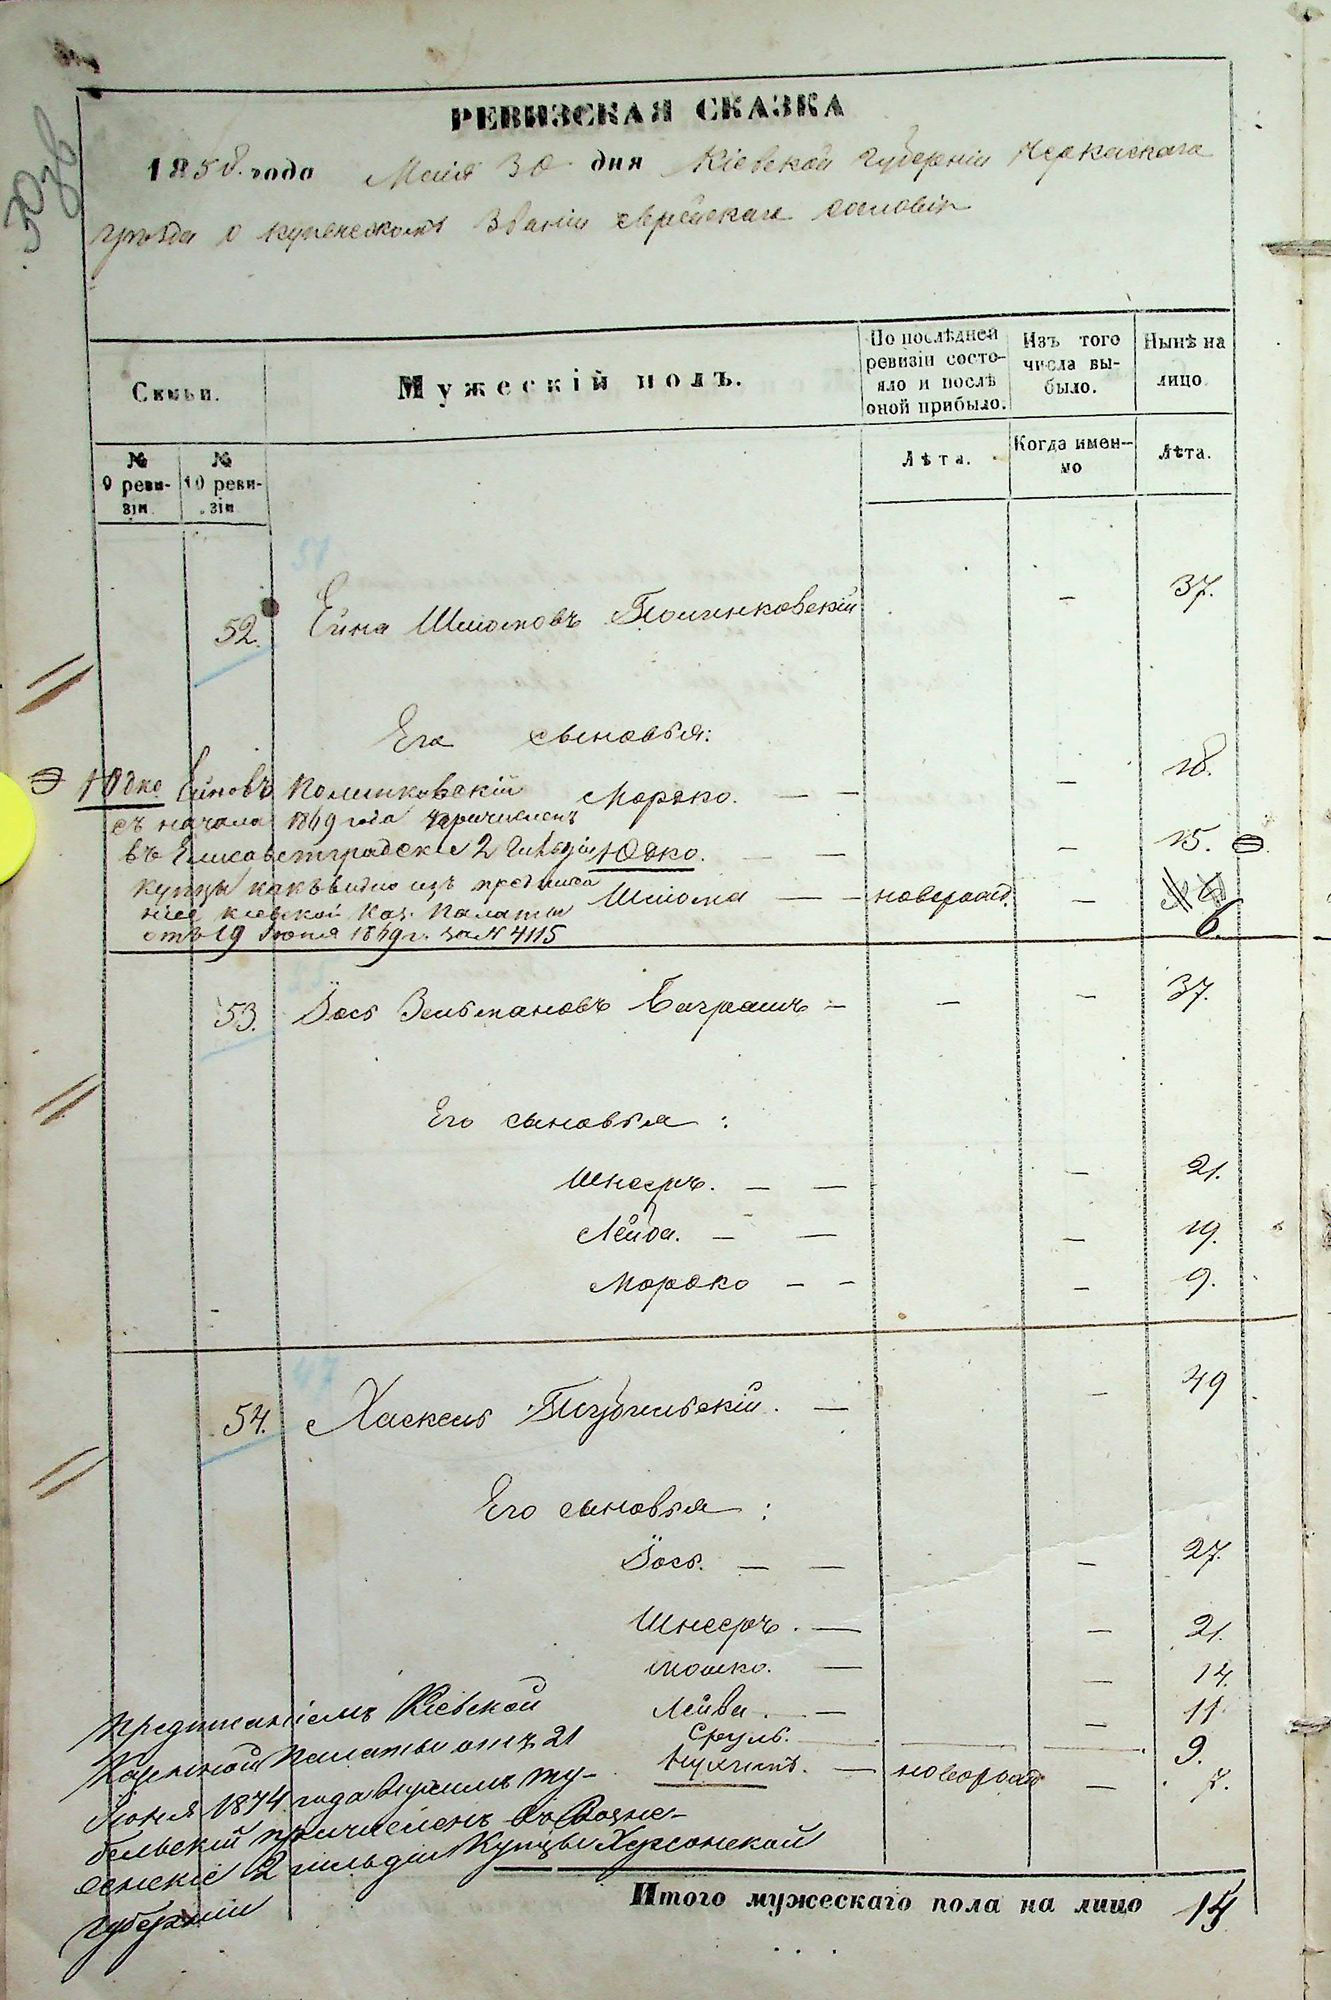 РЕВИЗСКАЯ СКАЗКА
1858 года Маія 30 дня Кіевской губерніи Черкаскаго
уѣзда о купеческомъ званіи еврейскаго сословія
Семьи.
Мужескій полъ.
По послѣдней ревизіи состояло и послѣ оной прибыло.
Изъ того числа выбыло.
Нынѣ на лицо
№ 9 ревизіи
№ 10 ревизіи
Лѣта.
Когда именно
Лѣта.
51
52. Ейна Шміомовъ Полинковскій — 37.
Его сыновья:
Мордко. — — — 18.
Юдко. — — — 15.
Шліома — — новорожд. — 6.
Юдко Ейновъ Полинковскій
съ начала 1869 года причисленъ
въ Елисаветградскіе 2 гильдіи
купцы какъ видно изъ предписа
нія Кіевской Каз. Палаты
отъ 19 Іюня 1869 г. за № 4115
53. Іось Зельмановъ — — — 37.
Его сыновья:
Шнееръ. — — — 21.
Лейба. — — — 19.
Мордко — — — 9.
47
54. Хаскель — — 49
Его сыновья:
Іось. — — — 27.
Шнееръ. — — 21.
Мошко. — — 14.
Лейба. — — 11.
Сруль. — — — 9.
Нухимъ. — новорожд — 7.
Предписаніемъ Кіевской
Казенной Палаты отъ 21
Іюня 1874 года
бельскій причисленъ въ Возне-
сенскіе 2 гильдіи Купцы Херсонской
губерніи
Итого мужескаго пола на лицо 14